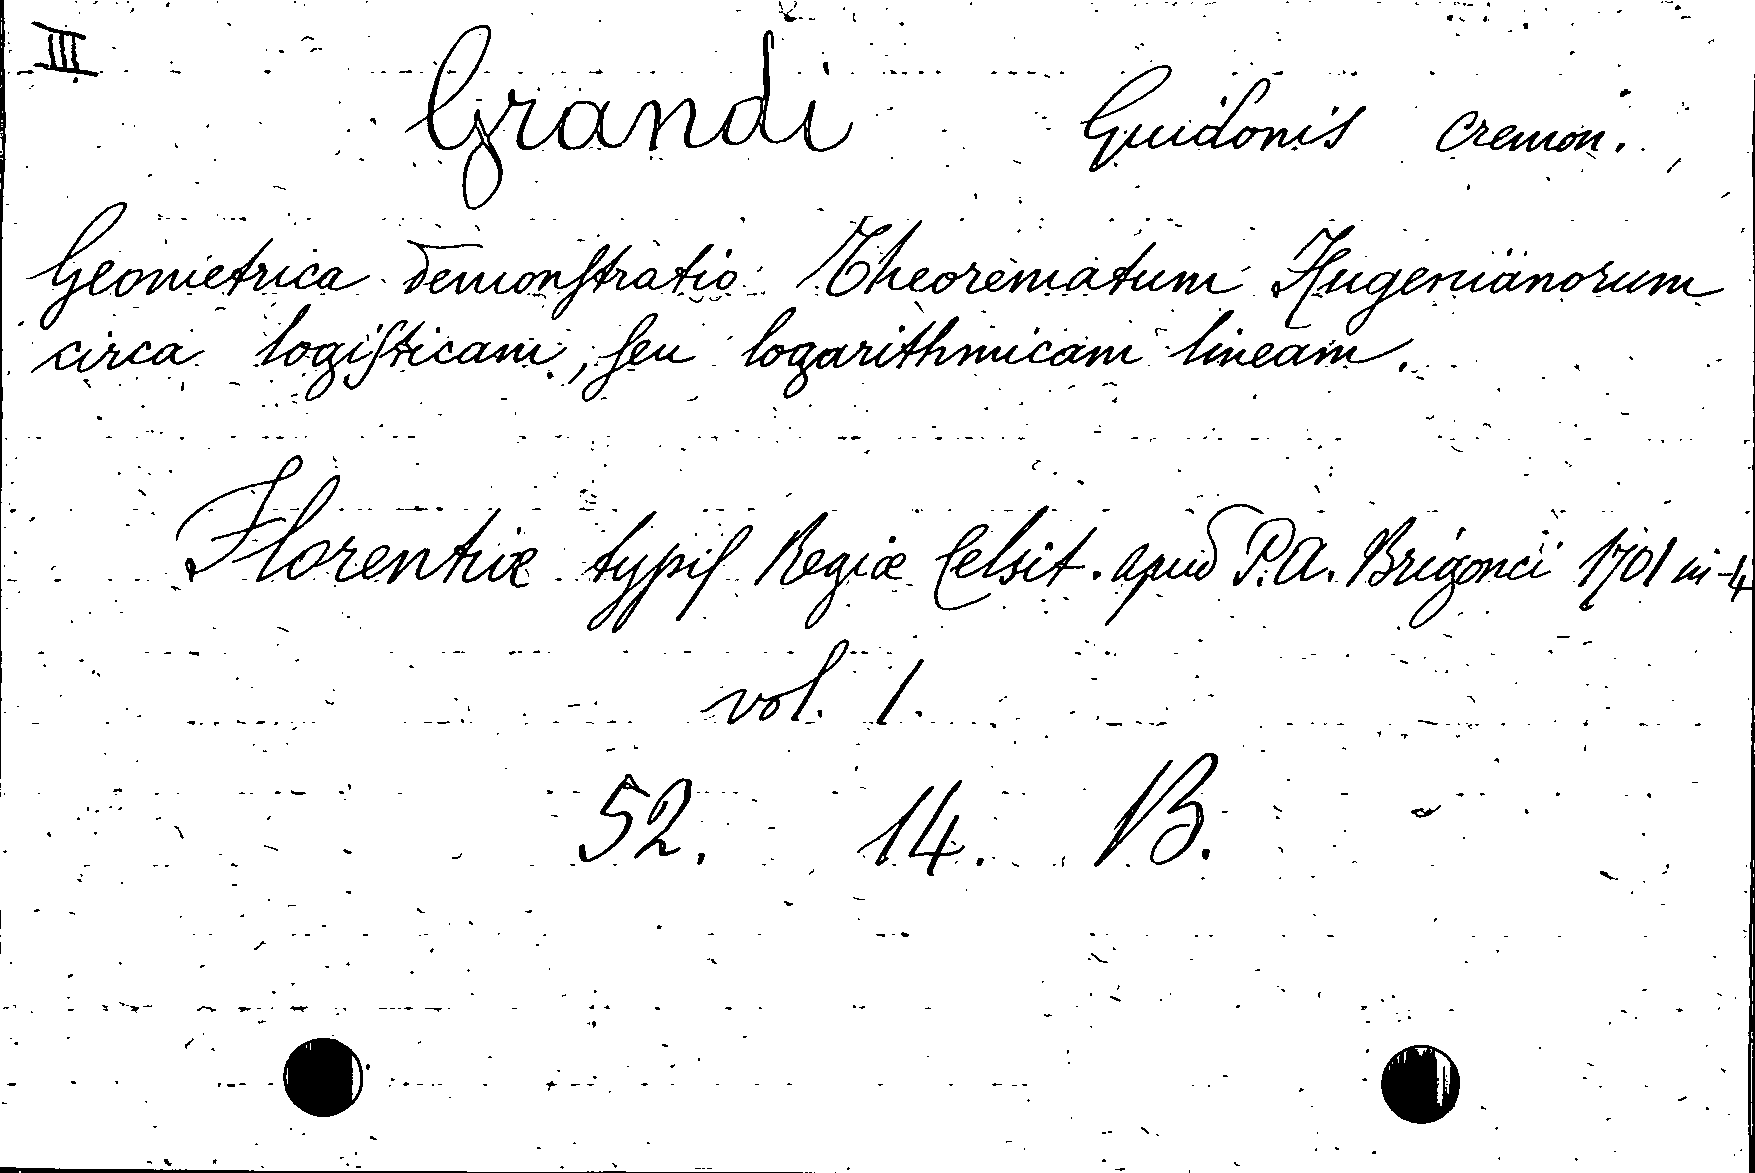 III
Grandi Guidonis Cremon.
Geometrica demonſtratio Theorematum Hugenianorum
circa logiſticam, ſeu logarithmicam lineam.
Florentiæ typiſ Regiæ Celsit. apud P.A. Brigonci 1701 in-4
vol. 1.
52. 14. B.